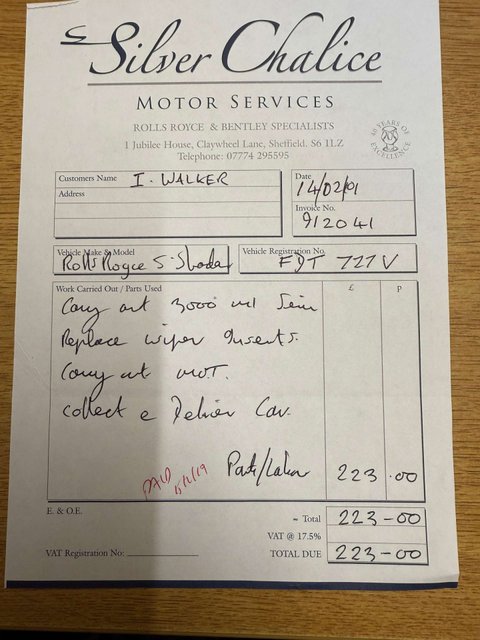 Silver Chalice
MOTOR SERVICES
ROLLS ROYCE & BENTLEY SPECIALISTS
1 Jubilee House, Claywheel Lane, Sheffield. S6 1LZ
Telephone: 07774 295595
40 YEARS OF EXCELLENCE
Customers Name I. WALKER
Address
Date 14/02/91
Invoice No. 912041
Vehicle Make & Model Rolls Royce S. Shadow
Vehicle Registration No. FDT 727V
Work Carried Out / Parts Used £ P
Carry out 3000 ml
Replace wiper Inserts.
Carry out M.O.T.
Collect & Deliver Car.
Parts/Labour 223.00
PAID
E. & O.E.
Total 223-00
VAT @ 17.5%
VAT Registration No:
TOTAL DUE 223-00